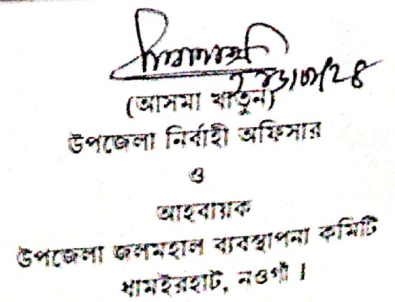 (আসমা খাতুন)
উপজেলা নির্বাহী অফিসার
ও
আহবায়ক
উপজেলা জলমহাল ব্যবস্থাপনা কমিটি
ধামইরহাট, নওগাঁ ।